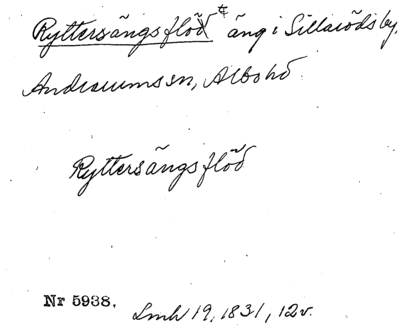 Ryttersängsflöd äng i Sillaröds by,
Andrarums sn, Albo hd
Ryttersängsflöd
Nr 5938.
Lmh 19, 1831, 12v.